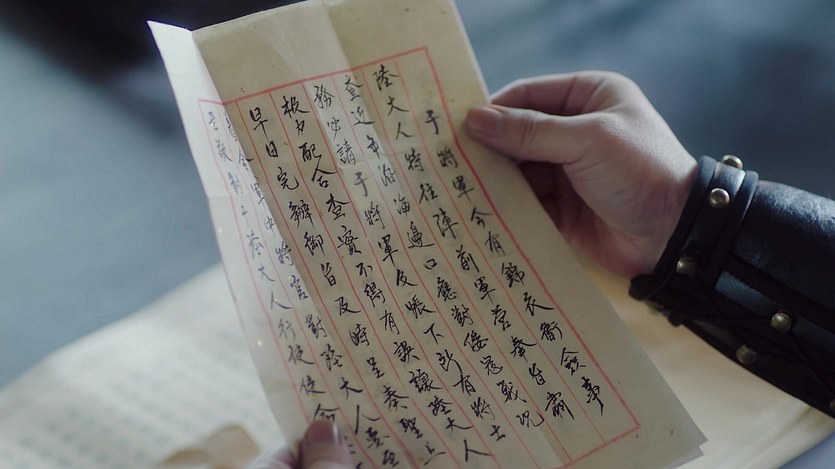 于將軍今有錦衣衛僉事
陸大人特往陣前軍營奉旨肅
查近年沿海邊口應對倭寇戰況
務必請于將軍及帳下所有將士
極力配合查實不得有誤讓陸大人
早日完辦御旨及時呈奏聖上
令軍中將官對陸大人要至
陸大人行使使命